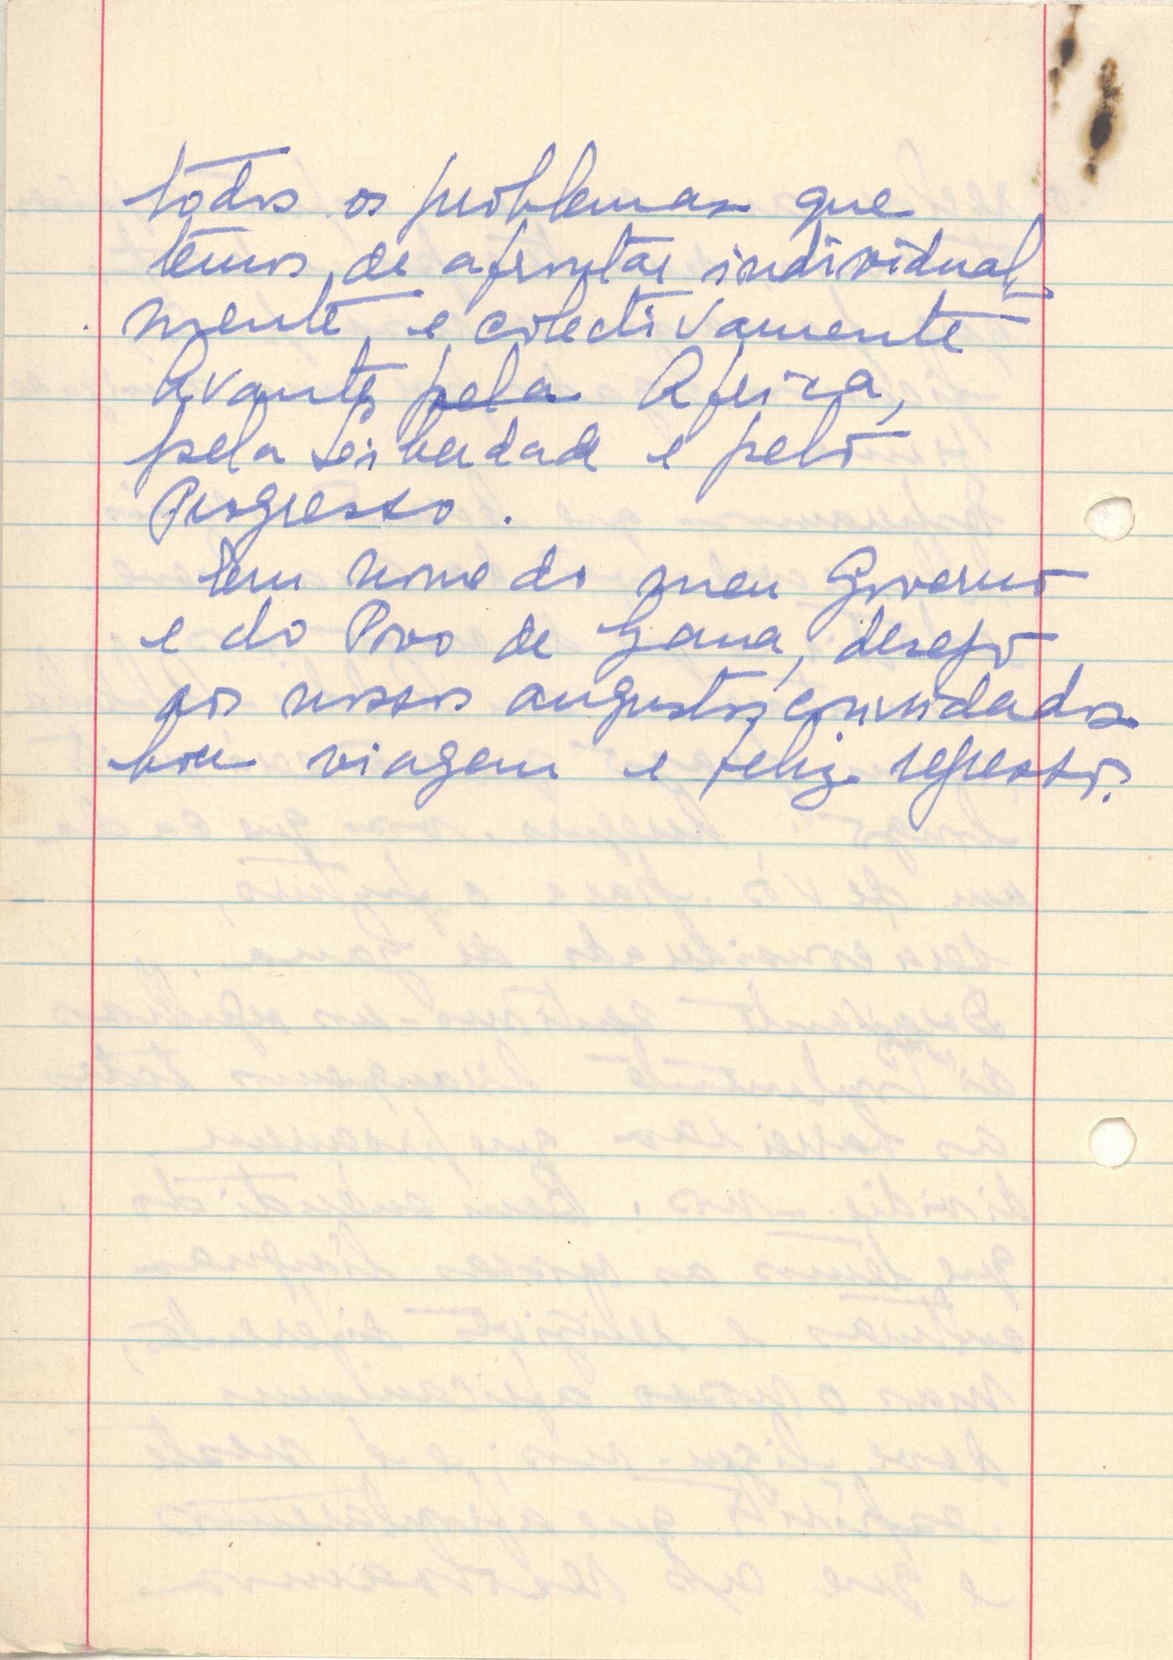 todos os problemas que
temos de afrontar individual-
mente e colectivamente
Avante, pela Africa,
pela Liberdade e pelo
Progresso.
Em nome do meu Governo
e do Povo de Gana, desejo
aos nossos augustos convidados
boa viagem e feliz regresso.